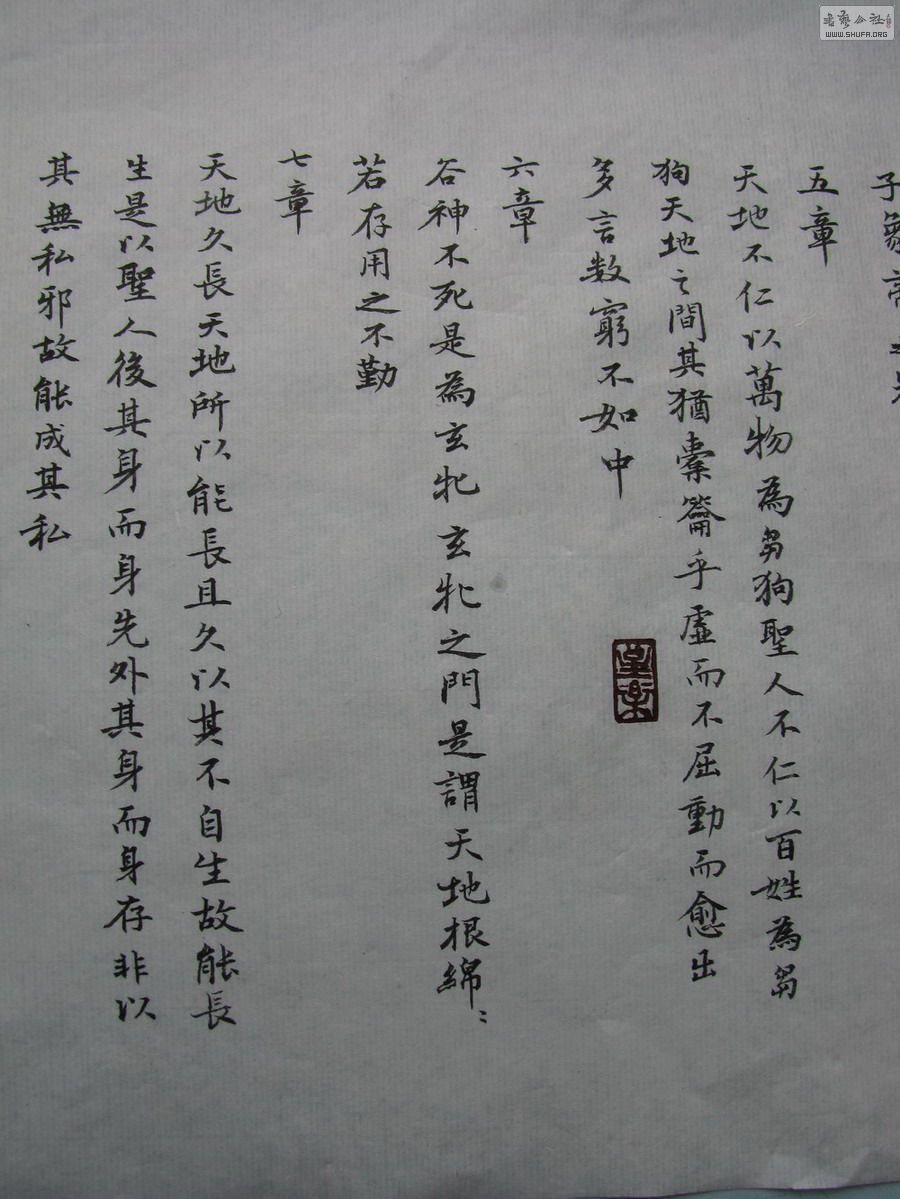 五章
天地不仁以萬物為芻狗聖人不仁以百姓為芻
狗天地之間其猶橐籥乎虛而不屈動而愈出
多言数窮不如中
六章
谷神不死是為玄牝玄牝之門是謂天地根綿〻
若存用之不勤
七章
天地久長天地所以能長且久以其不自生故能長
生是以聖人後其身而身先外其身而身存非以
其無私邪故能成其私
WWW.SHUFA.ORG